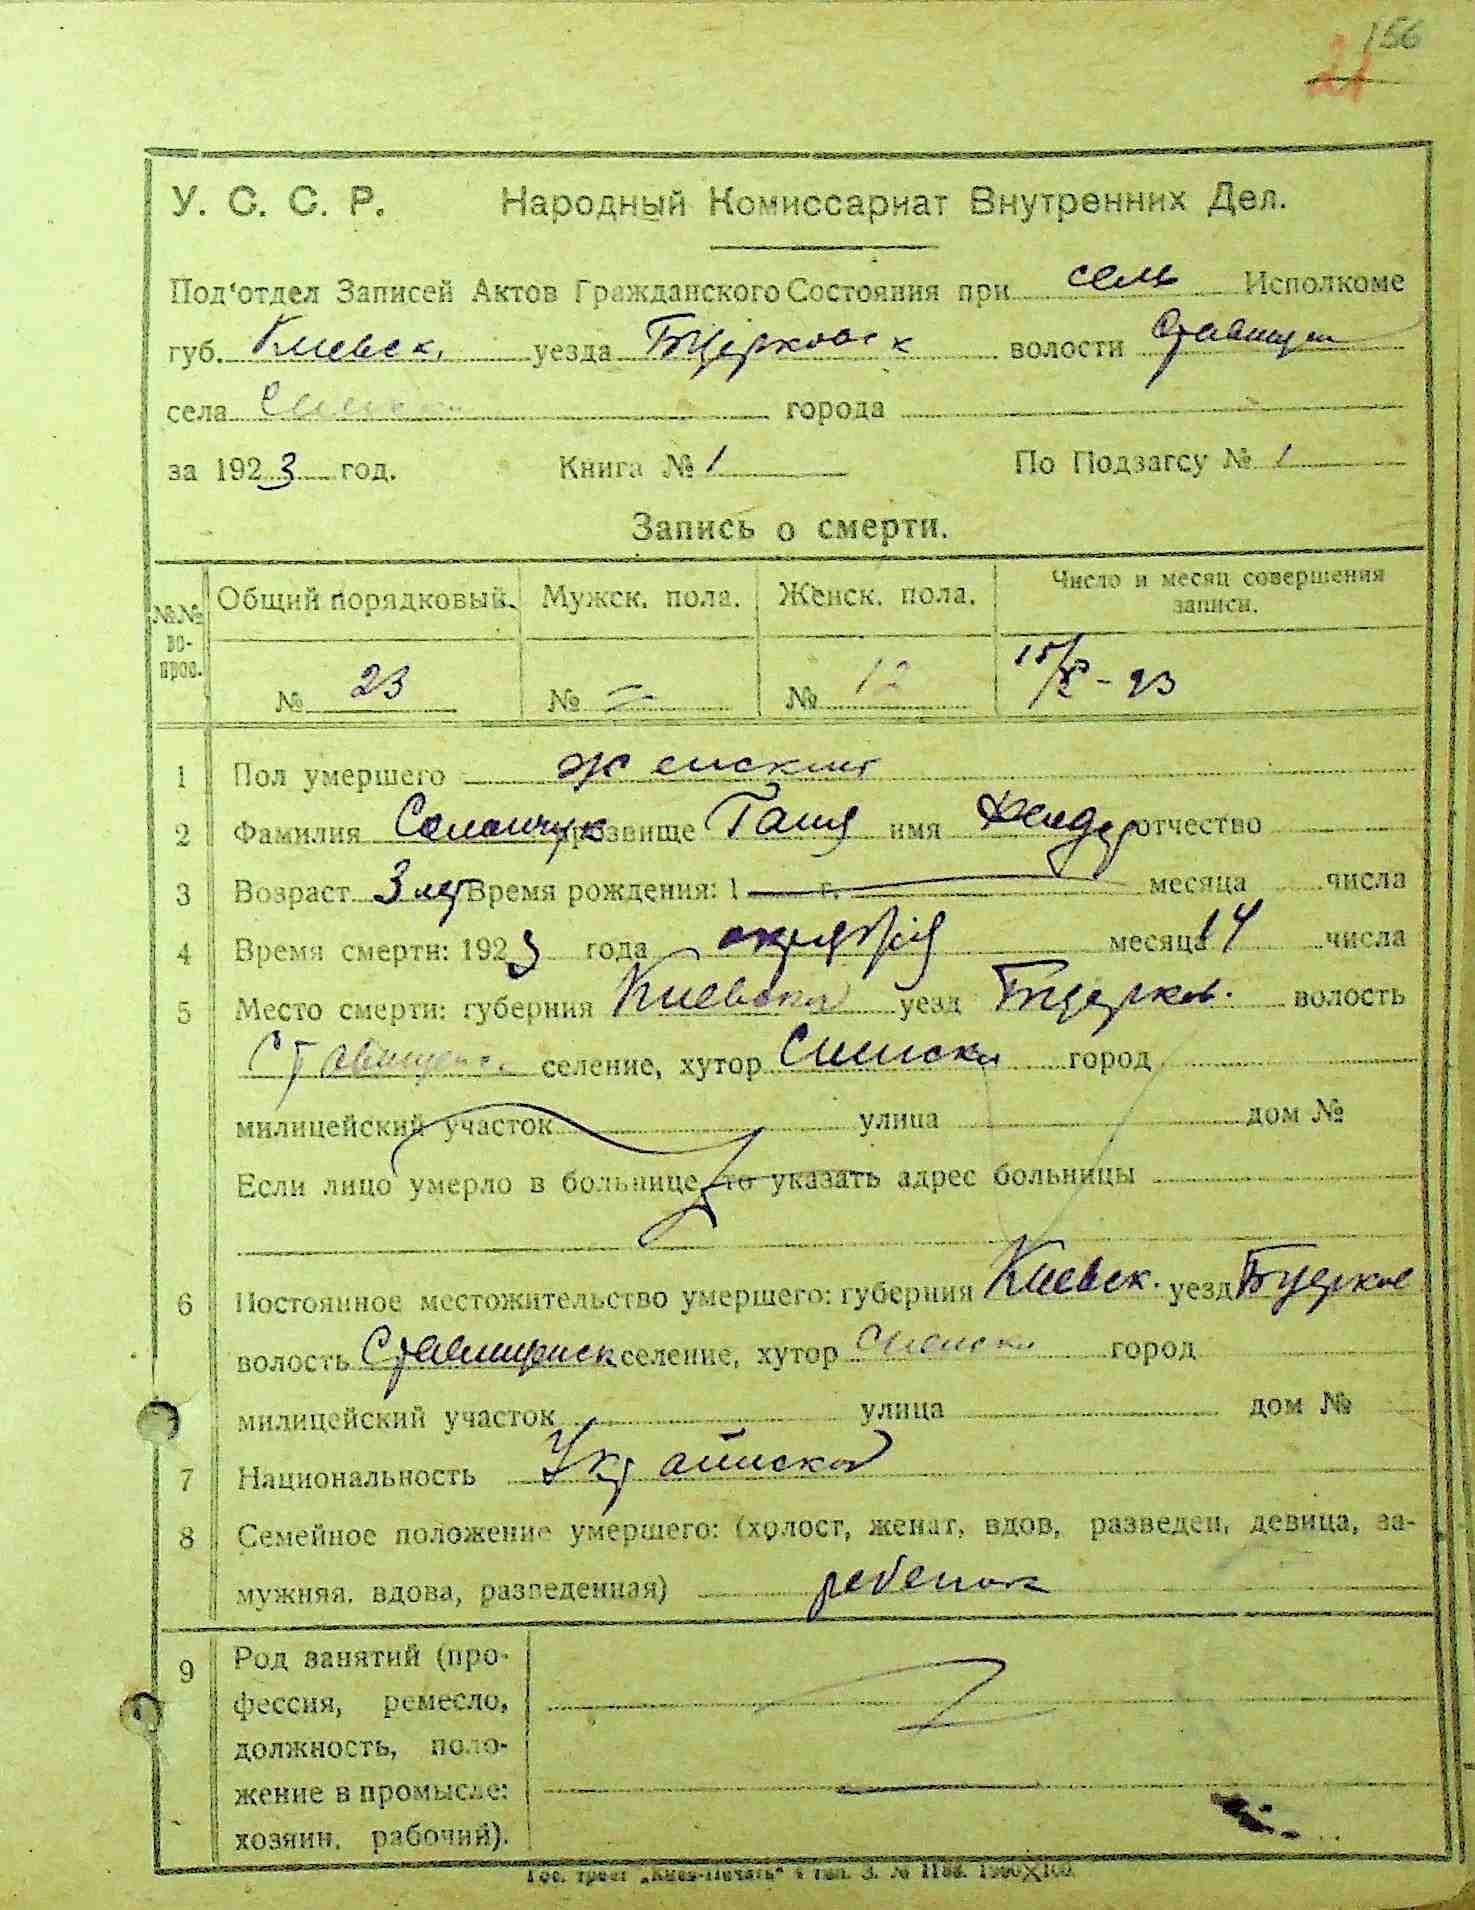 156
21
У. С. С. Р. Народный Комиссариат Внутренних Дел.
Под‘отдел Записей Актов Гражданского Состояния при сель Исполкоме
губ. Киевск. уезда Бцерковск волости Ставищан
села города
за 1923 год. Книга № 1 По Подзагсу № 1
Запись о смерти.
№№ во-прос. Общий порядковый. Мужск. пола. Женск. пола. Число и месяц совершения записи.
№ 23 № — № 12 15/X - 23
1 Пол умершего женский
2 Фамилия прозвище Ганя имя отчество
3 Возраст 3 лет Время рождения: 1 г. месяца числа
4 Время смерти: 1923 года октября месяца 14 числа
5 Место смерти: губерния Киевская уезд Бцерков. волость
Ставищенс селение, хутор город
милицейский участок улица дом №
Если лицо умерло в больнице, то указать адрес больницы
6 Постоянное местожительство умершего: губерния Киевск. уезд Бцерков
волость Ставищенск селение, хутор город
милицейский участок улица дом №
7 Национальность Украинская
8 Семейное положение умершего: (холост, женат, вдов, разведен, девица, за-
мужняя, вдова, разведенная) ребенок
9 Род занятий (про-
фессия, ремесло,
должность, поло-
жение в промысле:
хозяин, рабочий).
Гос. трест „Киев-Печать“ 4 тип. З. №